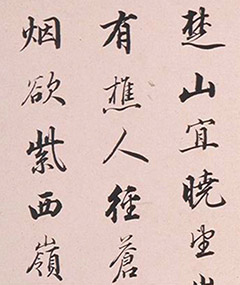 楚山宜曉望
有樵人徑蒼
烟欲紫西嶺